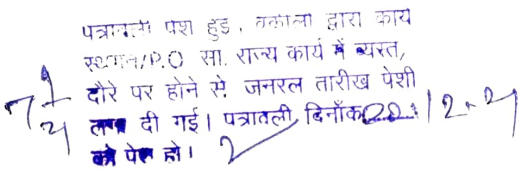 पत्रावली पेश हुई, वकीलों द्वारा कार्य
स्थगन/P.O सा. राज्य कार्य में व्यस्त,
दौरे पर होने से जनरल तारीख पेशी
लगा दी गई। पत्रावली दिनाँक
को पेश हो।